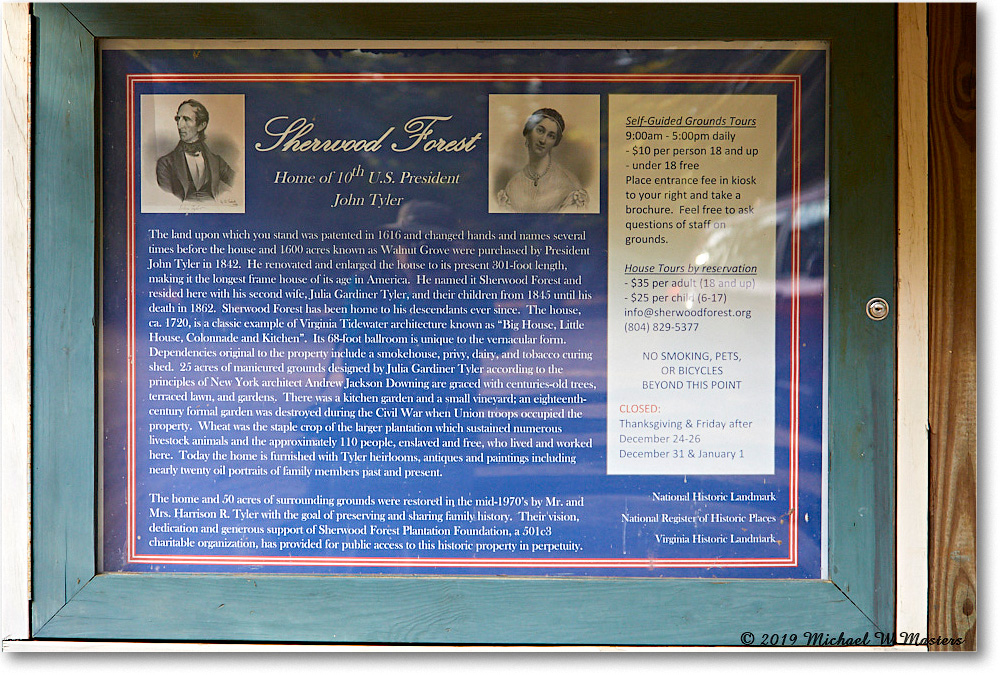 Sherwood Forest
Home of 10th U.S. President
John Tyler
The land upon which you stand was patented in 1616 and changed hands and names several
times before the house and 1600 acres known as Walnut Grove were purchased by President
John Tyler in 1842.  He renovated and enlarged the house to its present 301-foot length,
making it the longest frame house of its age in America.  He named it Sherwood Forest and
resided here with his second wife, Julia Gardiner Tyler, and their children from 1845 until his
death in 1862.  Sherwood Forest has been home to his descendants ever since.  The house,
ca. 1720, is a classic example of Virginia Tidewater architecture known as “Big House, Little
House, Colonnade and Kitchen”.  Its 68-foot ballroom is unique to the vernacular form.
Dependencies original to the property include a smokehouse, privy, dairy, and tobacco curing
shed.  25 acres of manicured grounds designed by Julia Gardiner Tyler according to the
principles of New York architect Andrew Jackson Downing are graced with centuries-old trees,
terraced lawn, and gardens.  There was a kitchen garden and a small vineyard; an eighteenth-
century formal garden was destroyed during the Civil War when Union troops occupied the
property.  Wheat was the staple crop of the larger plantation which sustained numerous
livestock animals and the approximately 110 people, enslaved and free, who lived and worked
here.  Today the home is furnished with Tyler heirlooms, antiques and paintings including
nearly twenty oil portraits of family members past and present.
The home and 50 acres of surrounding grounds were restored in the mid-1970’s by Mr. and
Mrs. Harrison R. Tyler with the goal of preserving and sharing family history.  Their vision,
dedication and generous support of Sherwood Forest Plantation Foundation, a 501c3
charitable organization, has provided for public access to this historic property in perpetuity.
Self-Guided Grounds Tours
9:00am - 5:00pm daily
- $10 per person 18 and up
- under 18 free
Place entrance fee in kiosk
to your right and take a
brochure.  Feel free to ask
questions of staff on
grounds.
House Tours by reservation
- $35 per adult (18 and up)
- $25 per child (6-17)
info@sherwoodforest.org
(804) 829-5377
NO SMOKING, PETS,
OR BICYCLES
BEYOND THIS POINT
CLOSED:
Thanksgiving & Friday after
December 24-26
December 31 & January 1
National Historic Landmark
National Register of Historic Places
Virginia Historic Landmark
© 2019 Michael W Masters